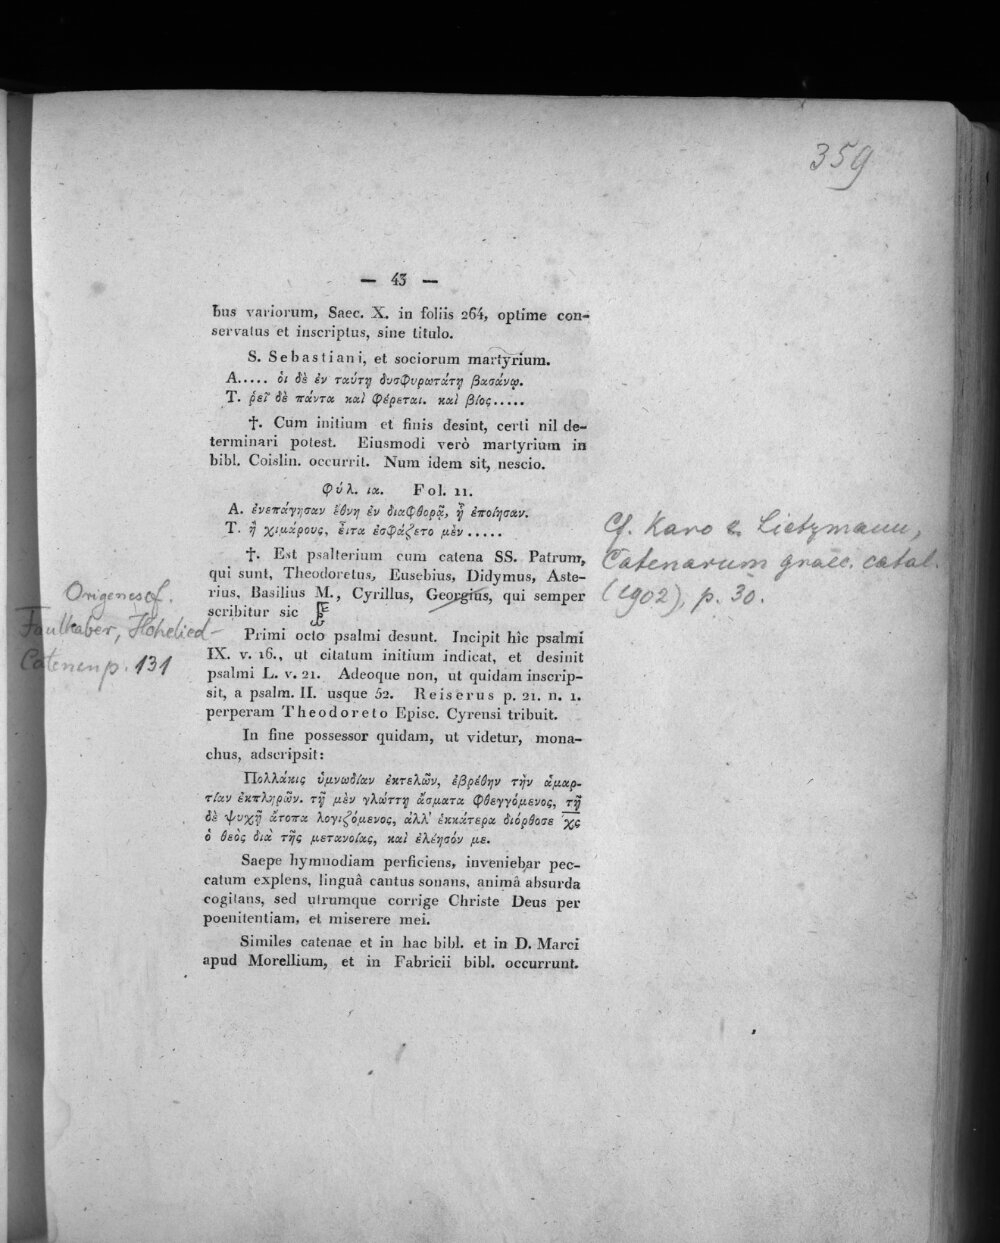 359
— 43 —
bus variorum, Saec. X. in foliis 264, optime con-
servatus et inscriptus, sine titulo.
S. Sebastiani, et sociorum martyrium.
A..... ὁι δὲ ἐν ταύτῃ δυσφυρωτάτῃ βασάνῳ.
T. ῥεῖ δὲ πάντα καὶ φέρεται. καὶ βίος.....
†. Cum initium et finis desint, certi nil de-
terminari potest. Eiusmodi verò martyrium in
bibl. Coislin. occurrit. Num idem sit, nescio.
Φύλ. ια. Fol. 11.
A. ἐνεπάγησαν ἔθνη ἐν διαφθορᾷ, ᾗ ἐποίησαν.
T. ἢ χιμάρους, εἶτα ἐσφάζετο μὲν.....
†. Est psalterium cum catena SS. Patrum,
qui sunt, Theodoretus, Eusebius, Didymus, Aste-
rius, Basilius M., Cyrillus, Georgius, qui semper
scribitur sic
Primi octo psalmi desunt. Incipit hic psalmi
IX. v. 16., ut citatum initium indicat, et desinit
psalmi L. v. 21. Adeoque non, ut quidam inscrip-
sit, a psalm. II. usque 52. Reiserus p. 21. n. 1.
perperam Theodoreto Episc. Cyrensi tribuit.
In fine possessor quidam, ut videtur, mona-
chus, adscripsit:
Πολλάκις ὑμνωδίαν ἐκτελῶν, ἑβρέθην τὴν ἁμαρ-
τίαν ἐκπληρῶν. τῇ μὲν γλώττῃ ἄσματα φθεγγόμενος, τῇ
δὲ ψυχῇ ἄτοπα λογιζόμενος, ἀλλ' ἑκκάτερα διόρθοσε χς
ὁ θεὸς διὰ τῆς μετανοίας, καὶ ἐλέησόν με.
Saepe hymnodiam perficiens, inveniebar pec-
catum explens, linguâ cantus sonans, animâ absurda
cogitans, sed utrumque corrige Christe Deus per
poenitentiam, et miserere mei.
Similes catenae et in hac bibl. et in D. Marci
apud Morellium, et in Fabricii bibl. occurrunt.
Cf. Karo e. Lietzmann,
Catenarum graec. catal.
(1902), p. 30.
Origenes cf.
Faulhaber, Hohelied-
Catenen p. 131